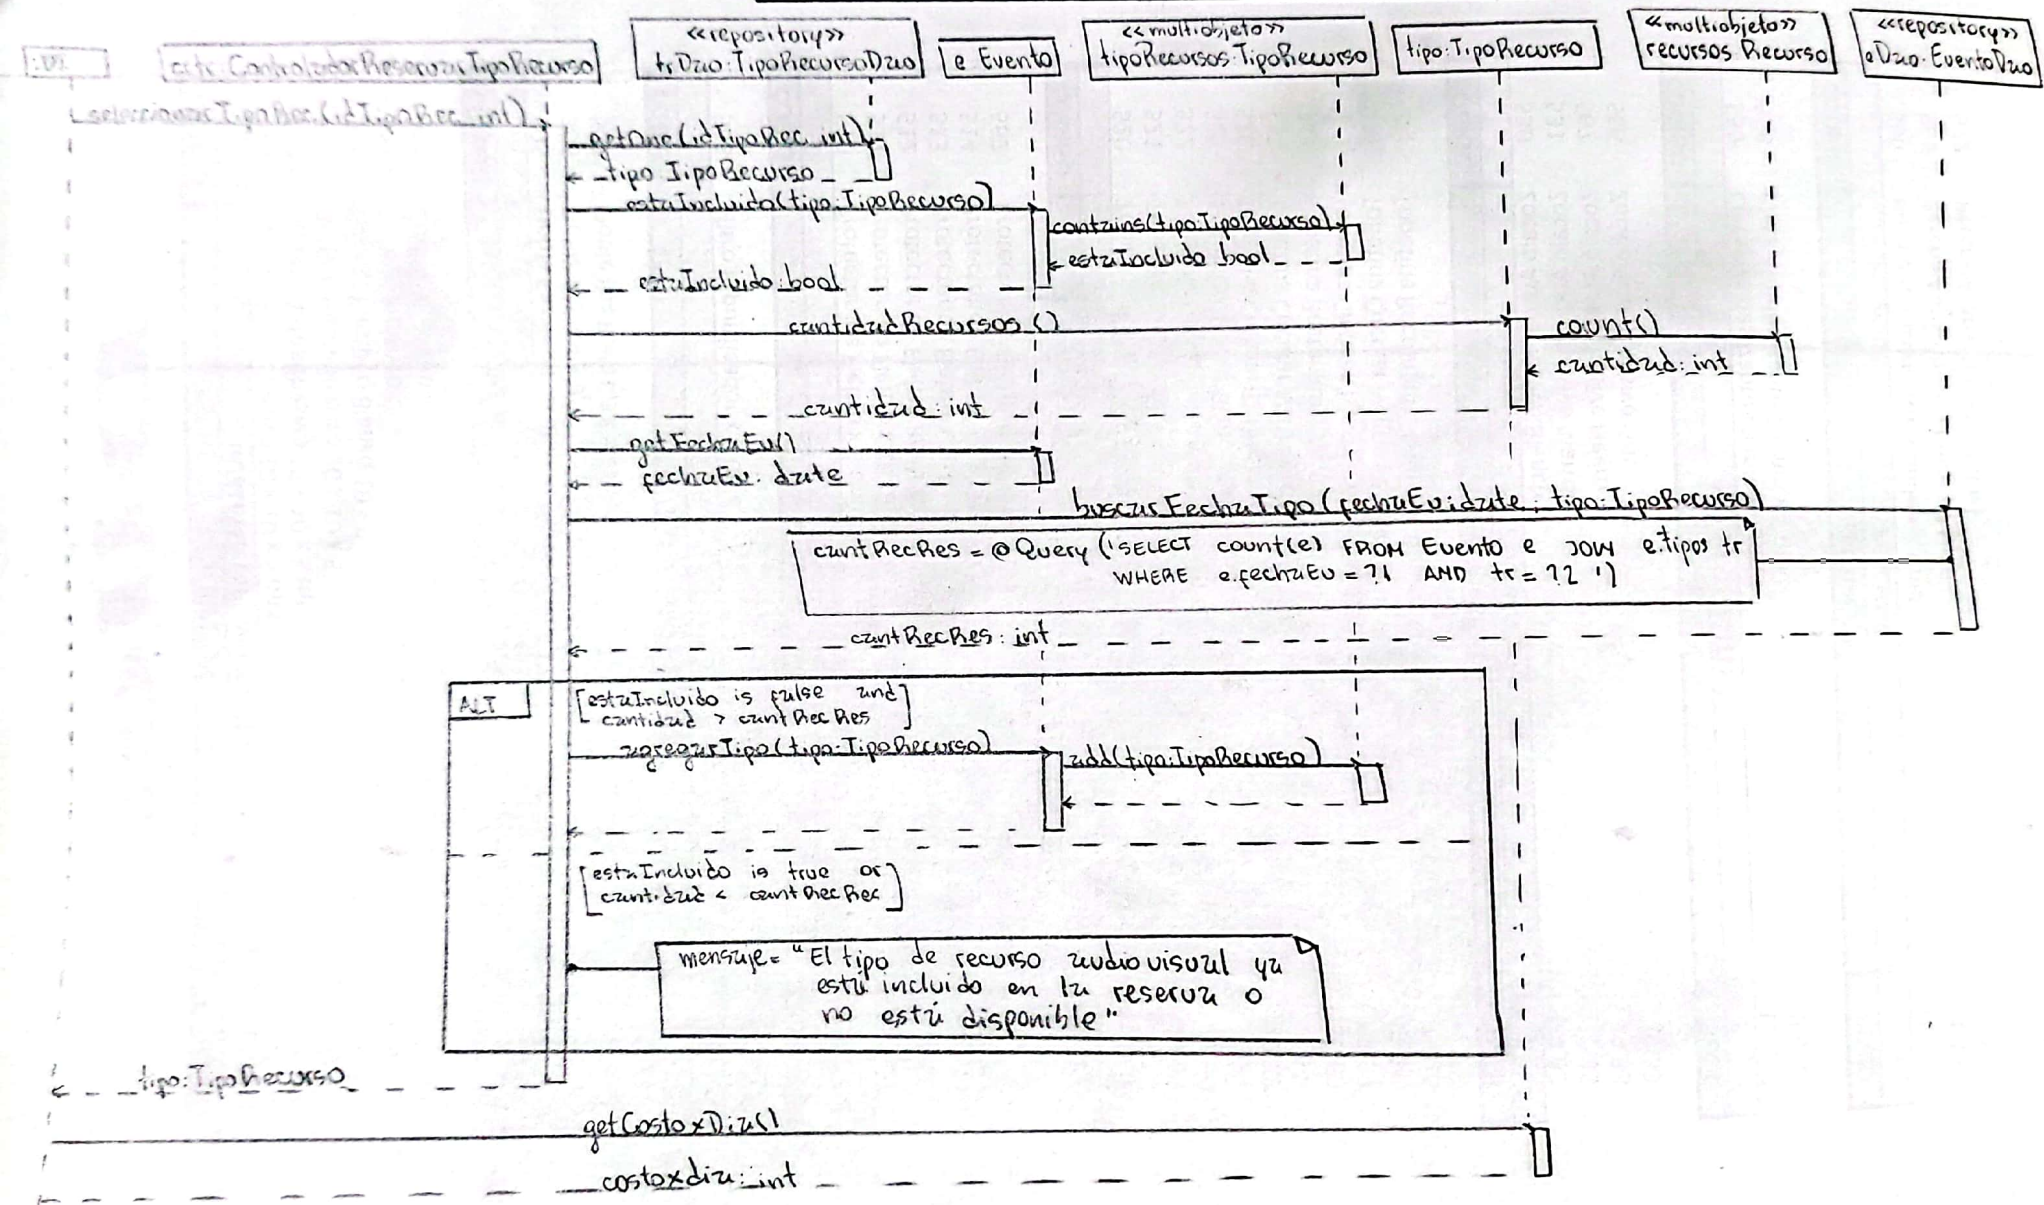 :UI
crtr: ControladorReservarTipoRecurso
<<repository>>
trDao:TipoRecursoDao
e Evento
<<multiobjeto>>
tipoRecursos:TipoRecurso
tipo:TipoRecurso
<<multiobjeto>>
recursos Recurso
<<repository>>
eDao.EventoDao
seleccionarTipoRec(idTipoRec int)
getOne(idTipoRec int)
tipo TipoRecurso
estaIncluido(tipo:TipoRecurso)
contains(tipo:TipoRecurso)
estaIncluido bool
estaIncluido:bool
cantidadRecursos()
count()
cantidad:int
cantidad:int
getFechaEv()
fechaEv: date
buscarFechaTipo(fechaEv:date; tipo:TipoRecurso)
cantRecRes = @Query ('SELECT count(e) FROM Evento e JOIN e.tipos tr
WHERE e.fechaEv = ?1 AND tr = ?2 ')
cantRecRes: int
ALT
[estaIncluido is false and
cantidad > cantRecRes]
agregarTipo(tipo:TipoRecurso)
add(tipo:TipoRecurso)
[estaIncluido is true or
cantidad < cantRecRec]
mensaje= "El tipo de recurso audiovisual ya
está incluido en la reserva o
no está disponible"
tipo:TipoRecurso
getCostoxDia()
costoxdia:int